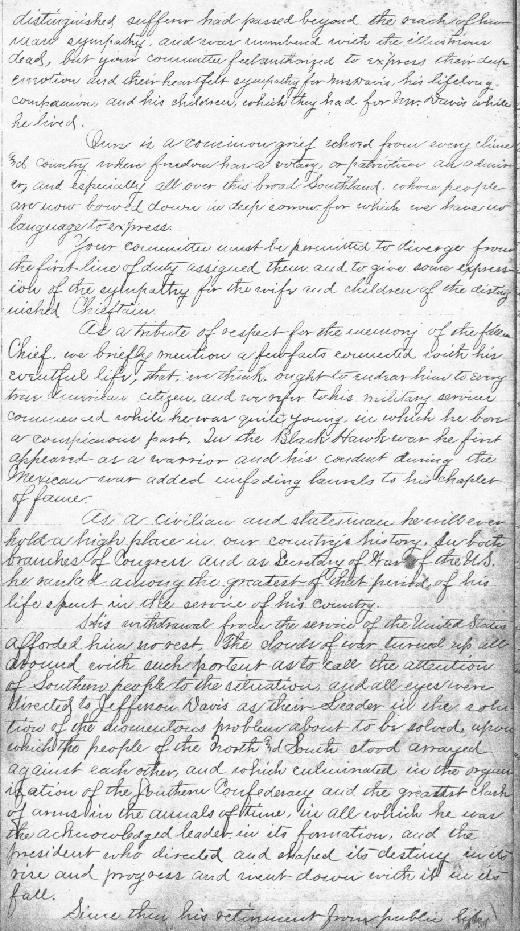 distinguished sufferer had passed beyond the reach of hu-
man sympathy, and was numbered with the illustrious
dead, but your committee feel authorized to express their deep
emotion and their heartfelt sympathy for Mrs Davis, his lifelong
companion, and his children, which they had for Mr. Davis while
he lived.
Ours is a common grief echoed from every clime
and country where freedom has a votary, or patriotism an admir-
er, and especially all over this broad Southland, whose people
are now bowed down in deep sorrow for which we have no
language to express.
Your committee must be permitted to diverge from
the first line of duty assigned them and to give some express-
ion of the sympathy for the wife and children of the disting
uished Chieftain.
As a tribute of respect for the memory of the fallen
Chief, we briefly mention a few facts connected with his
eventful life, that, we think, ought to endear him to every
true American citizen, and we refer to his military service
commenced while he was quite young, in which he bore
a conspicuous part. In the Black Hawk war he first
appeared as a warrior and his conduct during the
Mexican war added unfading laurels to his chaplet
of fame.
As a civilian and statesman he will ever
hold a high place in our country's history. In both
branches of Congress and as Secretary of War of the U.S.
he ranked among the greatest of that period of his
life spent in the service of his country.
His withdrawal from the service of the United States
afforded him no rest. The clouds of war turned up all
around with such portent as to call the attention
of Southern people to the situation, and all eyes were
directed to Jefferson Davis as their Leader in the solu-
tion of the momentous problem about to be solved, upon
which the people of the North and South stood arrayed
against each other, and which culminated in the organ
ization of the Southern Confederacy and the greatest clash
of arms in the annals of time, in all which he was
the acknowledged leader in its formation, and the
president who directed and shaped its destiny in its
rise and progress and went down with it in its
fall.
Since then his retirement from public life